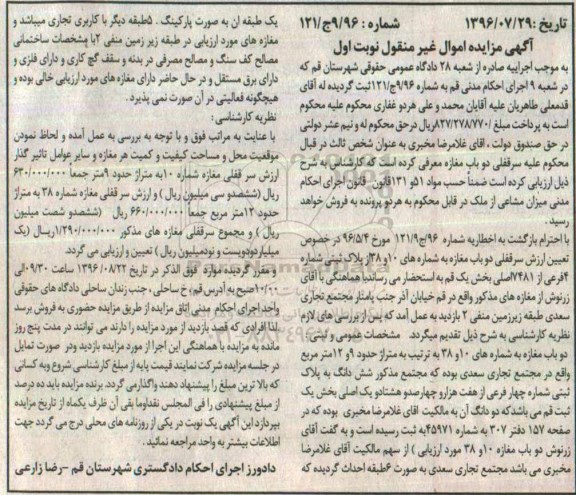 تاریخ :۱۳۹۶/۰۷/۲۹ شماره : ۹/۹۶ج/۱۲۱
آگهی مزایده اموال غیر منقول نوبت اول
به موجب اجراییه صادره از شعبه ۲۸ دادگاه عمومی حقوقی شهرستان قم که
در شعبه ۹ اجرای احکام مدنی قم به شماره ۹/۹۶ج/۱۲۱ثبت گردیده له آقای
قدمعلی طاهریان علیه آقایان محمد و علی هردو غفاری محکوم علیه محکوم
است به پرداخت مبلغ /۸۲۷/۲۷۸/۷۷۰ریال درحق محکوم له و نیم عشر دولتی
در حق صندوق دولت ، اقای غلامرضا مخبری به عنوان شخص ثالث در قبال
محکوم علیه سرقفلی دو باب مغازه معرفی کرده است که کارشناس به شرح
ذیل ارزیابی کرده است ضمناً حسب مواد ۵۱و ۱۳۱قانون قانون اجرای احکام
مدنی میزان مشاعی از ملک در قابل محکوم به هردو پرونده به فروش خواهد
رسید .
با احترام بازگشت به اخطاریه شماره ۹۶/ج۱۲۱/۹ مورخ ۹۶/۵/۴ در خصوص
تعیین ارزش سرقفلی دو باب مغازه به شماره های ۱۰و ۳۸از پلاک ثبتی شماره
۴فرعی از ۷۴۸۱اصلی بخش یک قم به استحضار می رساندباهماهنگی با آقای
زرنوش از مغازه های مذکور واقع در قم خیابان آذر جنب پامنار مجتمع تجاری
سعدی طبقه زیرزمین منفی ۲ بازدید به عمل آمد که پس از بررسی های لازم
نظریه کارشناسی به شرح ذیل تقدیم میگردد. مشخصات عمومی و ثبتی :
دو باب مغازه به شماره های ۱۰و ۳۸ به ترتیب به متراژ حدود ۹و ۱۲متر مربع
واقع در مجتمع تجاری سعدی بوده که مجتمع مذکور شش دانگ به پلاک
ثبتی شماره چهار فرعی از هفت هزارو چهارصدو هشتادو یک اصلی بخش یک
ثبت قم می باشدکه دو دانگ آن به مالکیت اقای غلامرضا مخبری بوده که در
صفحه ۱۵۷ دفتر ۳۰۷ به شماره ۴۵۹۷۱به ثبت رسیده است و به گفت آقای
زرنوش دو باب مغازه ۱۰و ۳۸ مورد ارزیابی ) از سهم مالکیت آقای غلامرضا
مخبری می باشد مجتمع تجاری سعدی به صورت ۶طبقه احداث گردیده که
یک طبقه ان به صورت پارکینگ . ۵طبقه دیگر با کاربری تجاری میباشد و
مغازه های مورد ارزیابی در طبقه زیر زمین منفی ۲با مشخصات ساختمانی
مصالح کف سنگ و مصالح مصرفی در بدنه و سقف گچ کاری و دارای فلزی و
دارای برق مستقل و در حال حاضر دارای مغازه های مورد ارزیابی خالی بوده و
هیچگونه فعالیتی در آن صورت نمی پذیرد .
نظریه کارشناسی :
با عنایت به مراتب فوق و با توجه به بررسی به عمل آمده و لحاظ نمودن
موقعیت محل و مساحت کیفیت و کمیت هر مغازه و سایر عوامل تاثیر گذار
ارزش سر قفلی مغازه شماره ۱۰به متراژ حدود ۹متر جمعا ۶۳۰/۰۰۰/۰۰۰
ریال (ششصدو سی میلیون ریال ) و ارزش سر قفلی مغازه شماره ۳۸ به متراژ
حدود ۱۲متر مربع جمعاً ۶۶۰/۰۰۰/۰۰۰ ریال (ششصدو شصت میلیون
ریال ) و مجموع سرقفلی مغازه های مذکور ۱/۲۹۰/۰۰۰/۰۰۰ریال (یک
میلیاردودویست و نودمیلیون ریال ) تعیین و ارزیابی می گردد.
و مقرر گردیده موارد فوق الذکر در تاریخ ۱۳۹۶/۰۸/۲۲ ساعت ۰۹/۳۰الی
۱۰/۰۰صبح به آدرس قم ، خ ساحلی ، جنب زندان ساحلی دادگاه های حقوقی
واحد اجرای احکام مدنی اتاق مزایده از طریق مزایده حضوری به فروش برسد
لذا افرادی که قصد بازدید از مورد مزایده را دارند می توانند در مدت پنج روز
مانده به مزایده با هماهنگی این اجرا از مورد مزایده بازدید ودر صورت تمایل
در جلسه مزایده شرکت نمایند قیمت پایه از مبلغ کارشناسی شروع وبه کسانی
که بالا ترین مبلغ را پیشنهاد دهند واگذارمی گردد. برنده مزایده باید ده درصد
از مبلغ پیشنهادی را فی المجلس نقداوما بقی آن ظرف یکماه از تاریخ مزایده
بپردازد این آگهی یک نوبت در یکی از روزنامه های محلی درج می گردد جهت
اطلاعات بیشتر به واحد مراجعه نمائید .
دادورز اجرای احکام دادگستری شهرستان قم -رضا زارعی